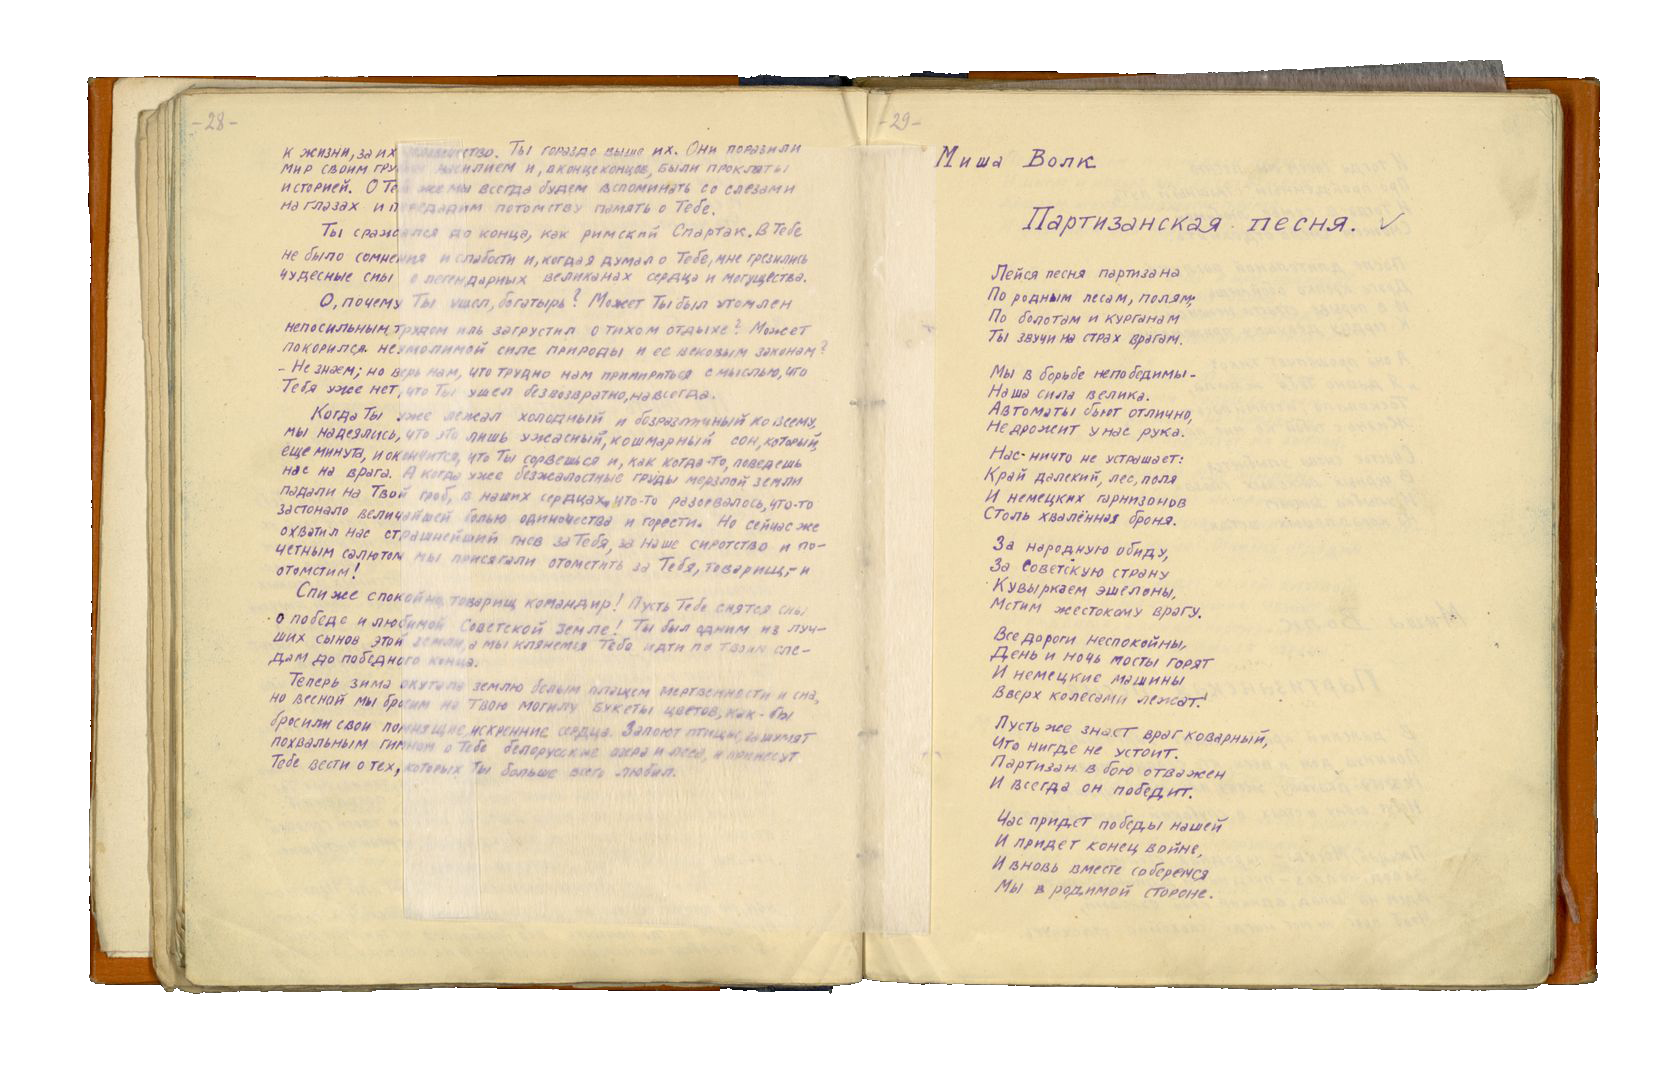 -28-
к жизни, за их множество. Ты гораздо выше их. Они поразили
мир своим грубым насилием и, вконце концов, были прокляты
историей. О Тебе же мы всегда будем вспоминать со слезами
на глазах и передадим потомству память о Тебе.
Ты сражался до конца, как римский Спартак. В Тебе
не было сомнения и слабости и, когда я думал о Тебе, мне грезились
чудесные сны о легендарных великанах сердца и могущества.
О, почему Ты ушел, богатырь? Может Ты был утомлен
непосильным трудом иль загрустил о тихом отдыхе? Может
покорился неумолимой силе природы и ее вековым законам?
- Не знаем; но верь нам, что трудно нам примириться с мыслью, что
Тебя уже нет, что Ты ушел безвозвратно, навсегда.
Когда Ты уже лежал холодный и безразличный ко всему,
мы надеялись, что это лишь ужасный, кошмарный сон, который,
еще минута, и окончится, что Ты сорвешься и, как когда-то, поведешь
нас на врага. А когда уже безжалостные груды мерзлой земли
падали на Твой гроб, в наших сердцах что-то разорвалось, что-то
застонало величайшей болью одиночества и горести. Но сейчас же
охватил нас страшнейший гнев за Тебя, за наше сиротство и по-
четным салютом мы присягали отомстить за Тебя, товарищ, - и
отомстим!
Спи же спокойно, товарищ командир! Пусть Тебе снятся сны
о победе и любимой Советской Земле! Ты был одним из луч-
ших сынов этой земли, а мы клянемся Тебе идти по твоим сле-
дам до победного конца.
Теперь зима окутала землю белым плащем мертвенности и сна,
но весной мы бросим на Твою могилу букеты цветов, как-бы
бросили свои помнящие, искренние сердца. Запоют птицы, зашумят
похвальным гимном о Тебе белорусские озера и леса, и принесут
Тебе вести о тех, которых Ты больше всего любил.
-29-
Миша Волк
Партизанская песня. ✓
Лейся песня партизана
По родным лесам, полям;
По болотам и курганам
Ты звучи на страх врагам.
Мы в борьбе непобедимы -
Наша сила велика.
Автоматы бьют отлично,
Не дрожит у нас рука.
Нас ничто не устрашает:
Край далекий, лес, поля
И немецких гарнизонов
Столь хвалённая броня.
За народную обиду,
За Советскую страну
Кувыркаем эшелоны,
Мстим жестокому врагу.
Все дороги неспокойны,
День и ночь мосты горят
И немецкие машины
Вверх колесами лежат!
Пусть же знает враг коварный,
Что нигде не устоит.
Партизан в бою отважен
И всегда он победит.
Час придет победы нашей
И придет конец войне,
И вновь вместе соберемся
Мы в родимой стороне.